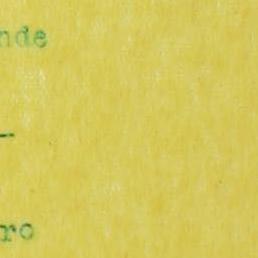 nde
—
ro